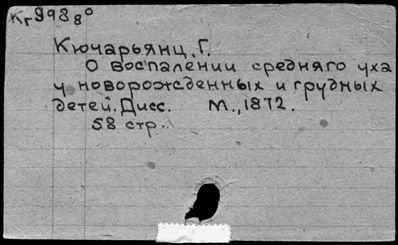 Кг 998 8°
Кючарьянц, Г.
О воспалении средняго уха
у новорожденных и грудных
детей. Дисс. М., 1872.
58 стр.